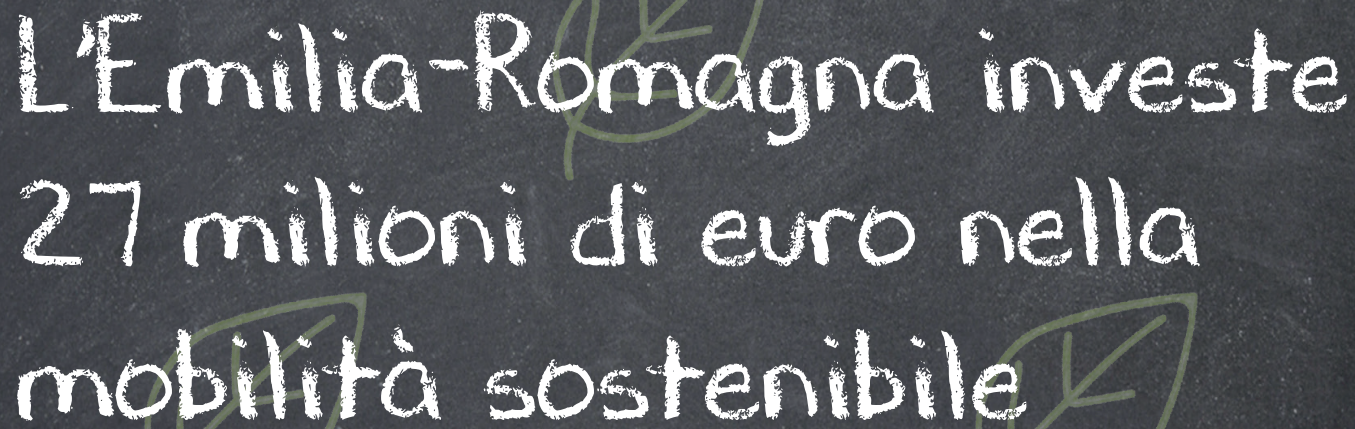 L'Emilia-Romagna investe
27 milioni di euro nella
mobilità sostenibile